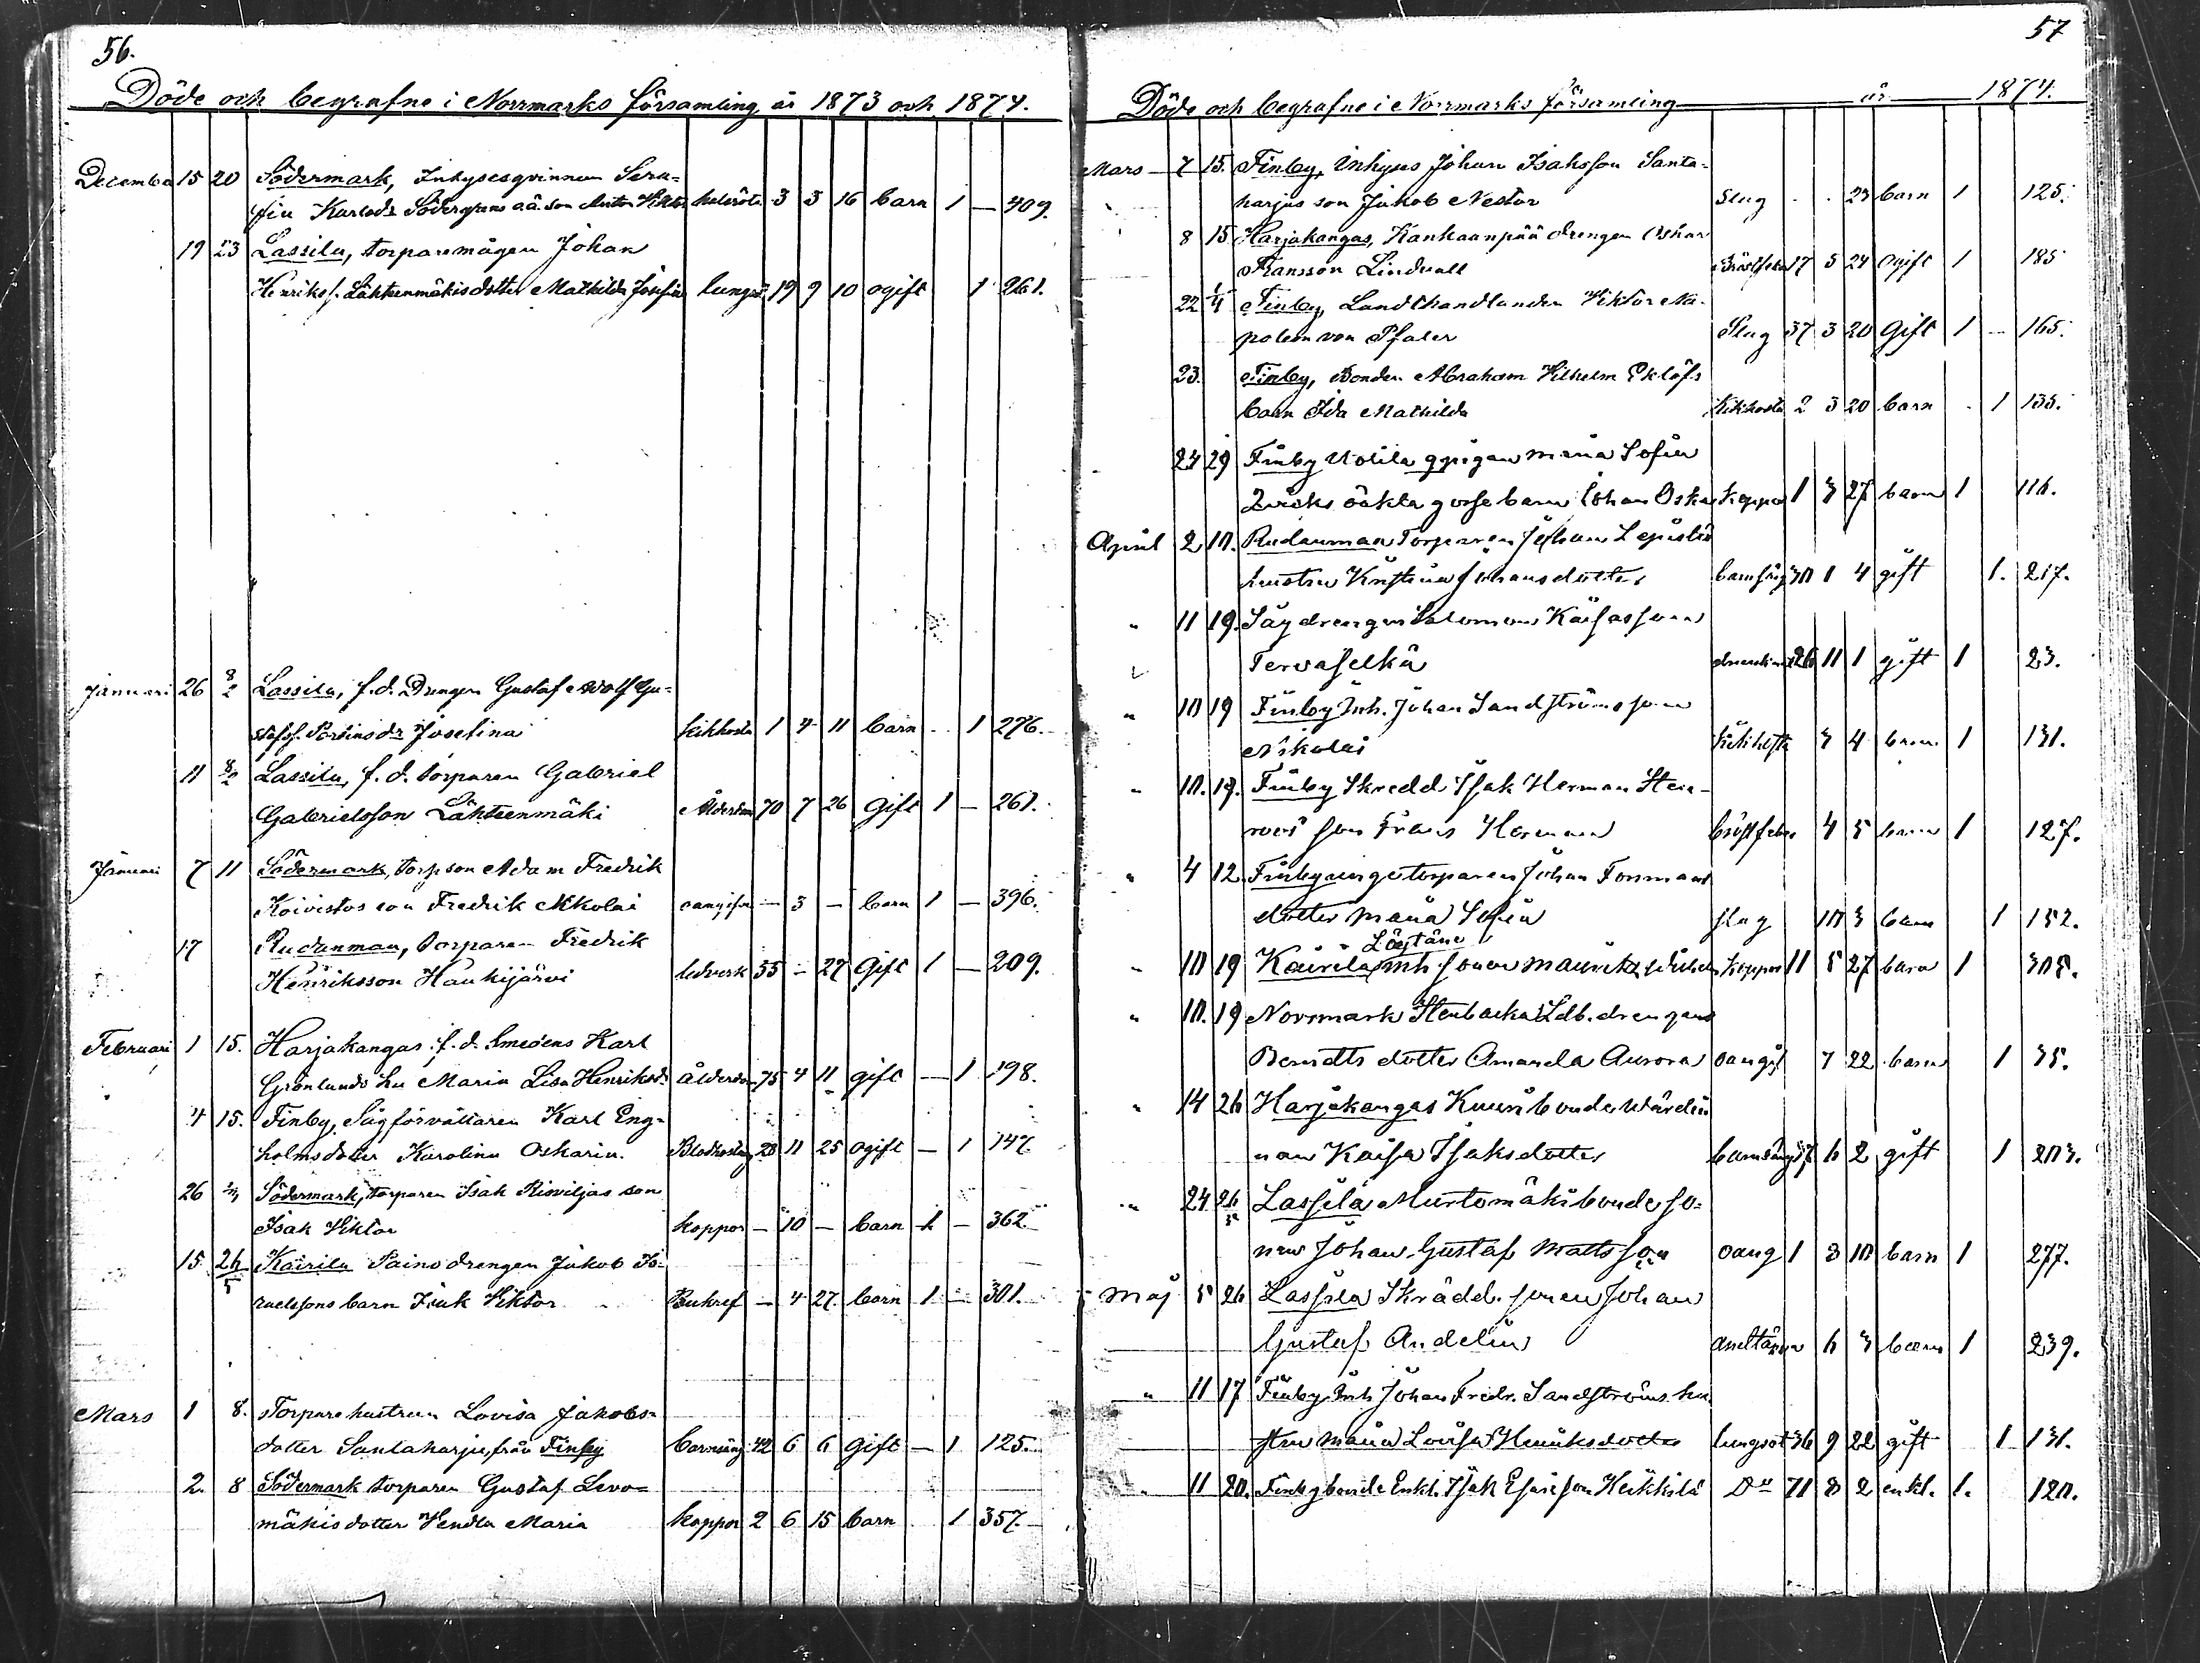 56.
Döde och begrafne i Norrmarks församling år 1873 och 1874.
December 15 20 Södermark, Inhysesqvinnan Sera-
fia Karlsdr Södergrans oä. son Anton Viktor halsröta 3 3 16 barn 1 — 409.
19 23 Lassila, torparemågen Johan
Henrikss. Lähteenmäkis dotter Mathilda Josefina lungs 19 9 10 ogift 1 261.
Januari 26 8/2 Lassila, f.d. Drengen Gustaf Adolf Gu-
stafss. Porsinsdr Josefina kikhosta 1 4 11 barn . 1 276.
11 8/2 Lassila, f.d. torparen Gabriel
Gabrielsson Lähteenmäki Ålderdom 70 7 26 Gift 1 — 261.
Januari 7 11 Södermark, torp son Adam Fredrik
Koivistos son Fredrik Nikolai oangifven — 3 — barn 1 — 396.
17 Rudanmaa, torparen Fredrik
Henriksson Haukijärvi ledverk 55 — 27 Gift 1 — 209.
Februari 1 15. Harjakangas f.d. Smedens Karl
Grönlunds hu Maria Lisa Henriksdr ålderdom 75 4 11 gift — 1 198.
4 15. Finby, Sågförvaltaren Karl Eng-
holms dotter Karolina Oskaria. Blodhosta 28 11 25 ogift — 1 147
26 Södermark, torparen Isak Risviljas son
Isak Viktor koppor — 10 — barn 1 — 362
15 26/5 Kairila Paino drengen Jakob Is-
raelssons barn Isak Viktor Bukref — 4 27 barn 1 — 301.
Mars 1 8. Torparehustrun Lovisa Jakobs-
dotter Santaharju, från Finby barnsäng 42 6 6 gift — 1 125.
2. 8 Södermark torparen Gustaf Levo-
mäkis dotter Hendla Maria koppor 2 6 15 barn 1 357.
57
Döde och begrafne i Norrmarks församling år 1874.
Mars 7 15. Finby, inhyses Johan Isaksson Santa-
harjus son Jakob Nestor Slag . . 23 barn 1 125.
8 15 Harjakangas, Kankaanpää drengen Oskar
Fransson Lindvall Bröstfeber 17 5 24 ogift 1 185
22 1/4 Finby, Landthandlanden Viktor Na-
poleon von Pfaler Slag 37 3 20 Gift 1 — 165.
23. Finby, Bonden Abraham Vilhelm Eklöfs
barn Ida Mathilda kikhosta 2 3 20 barn . 1 135.
24 29 Finby Uotila qpigan Maria Sofia
oäkta gossebarn Johan Oskar koppor 1 3 27 barn 1 116.
April 2 10. Rudanmaa Torparen Johan Lepistös
hustru Kristina Johansdotter barnsäng 30 1 4 gift 1. 217.
" 11 19. Sågdrengen Salomon Kaisasson
Tervaselkä 26 11 1 gift 1 23.
" 10 19 Finby Inh. Johan Sandströms son
Nikolai kikhosta 3 4 barn 1 131.
" 10. 19. Finby Skredd Isak Herman Sten-
roos son Frans Herman bröstfeber 4 5 barn 1 127.
" 4 12. Finby torparen Johan Forsmans
dotter Maria Sofia slag 10 3 barn 1 152.
Löytäne
" 10 19 Kairila inh sonen Mauritz Wilhelm koppor 11 5 27 barn 1 305.
" 10. 19 Norrmark Stenbacka Ldb. drengens
Berndts dotter Amanda Aurora oangif 7 22 barn 1 35.
" 14 26 Harjakangas bonde Wärdin-
nan Kaisa Isaksdotter barnsäng 37 6 2 gift 1 203.
" 24 26 Lassila Murtomäki bonde so-
nen Johan Gustaf Mattsson oang 1 3 10 barn 1 277.
Maj 5 26 Lassila Skrädd. sonen Johan
Gustaf Andelin andtäppa 6 3 barn 1 239.
" 11 17 Finby Inh Johan Fredr. Sandströms hu
stru Maria Lovisa Henriksdotter lungsot 36 9 22 gift 1 131.
" 11 20. Finby bonde Enkl. Isak Esaiesson Heikkilä Do 71 8 2 enkl. 1. 120.